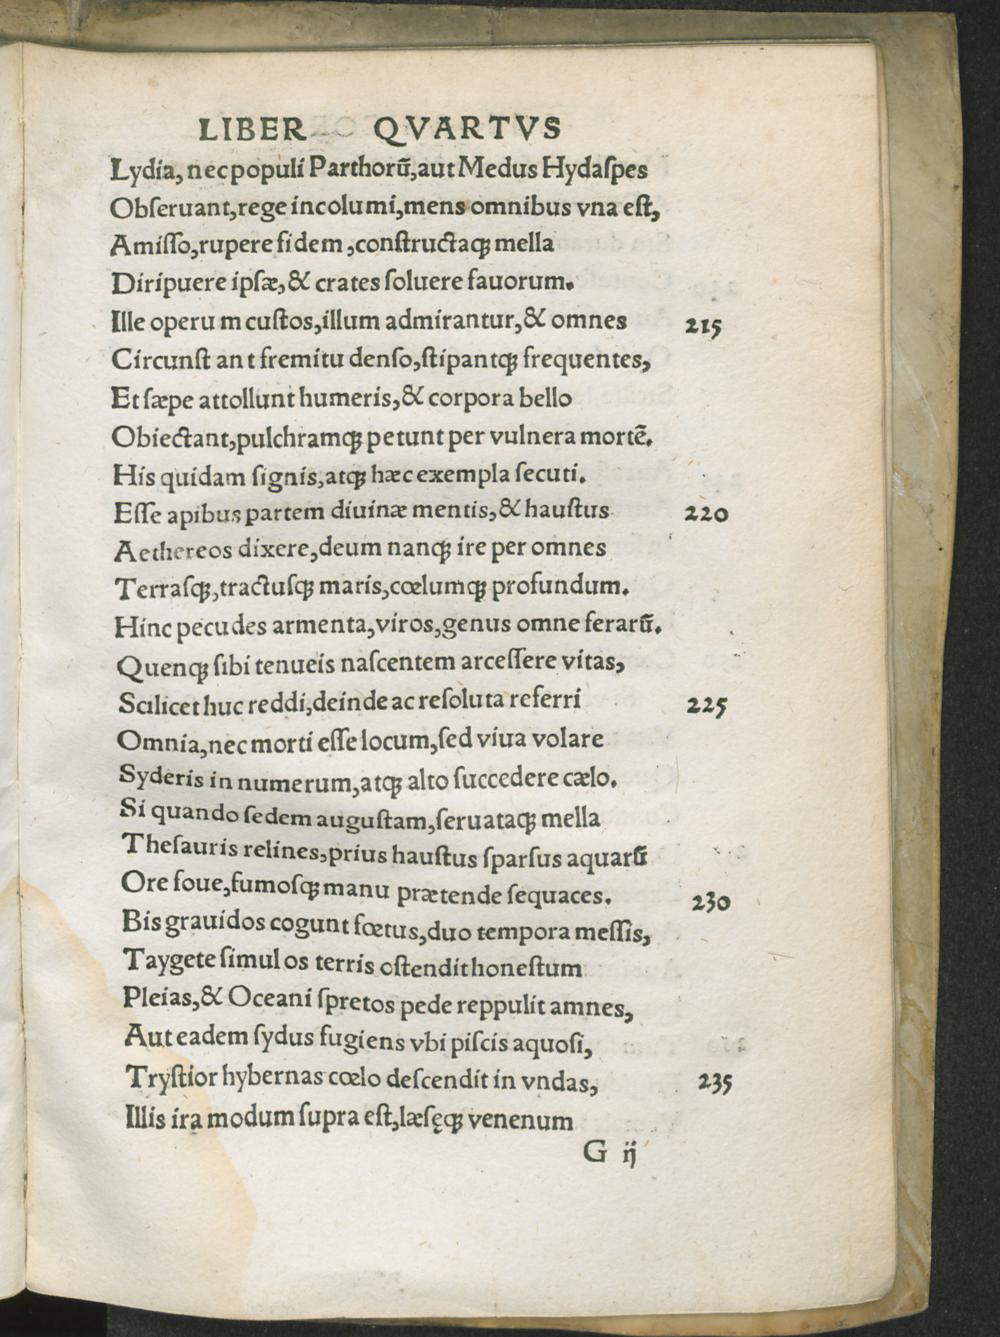 LIBER QVARTVS
Lydia, nec populi Parthorũ, aut Medus Hydaſpes
Obſeruant, rege incolumi, mens omnibus vna eſt,
Amiſſo, rupere fidem, conſtructaqꝫ mella
Diripuere ipſæ, & crates ſoluere fauorum.
Ille operum cuſtos, illum admirantur, & omnes 215
Circunſtant fremitu denſo, ſtipantqꝫ frequentes,
Et ſæpe attollunt humeris, & corpora bello
Obiectant, pulchramqꝫ petunt per vulnera mortẽ.
His quidam ſignis, atqꝫ hæc exempla ſecuti.
Eſſe apibus partem diuinæ mentis, & hauſtus 220
Aethereos dixere, deum nanqꝫ ire per omnes
Terraſqꝫ, tractuſqꝫ maris, cœlumqꝫ profundum.
Hinc pecudes armenta, viros, genus omne ferarũ.
Quenqꝫ ſibi tenueis naſcentem arceſſere vitas,
Scilicet huc reddi, deinde ac reſoluta referri 225
Omnia, nec morti eſſe locum, ſed viua volare
Syderis in numerum, atqꝫ alto ſuccedere cælo.
Si quando ſedem auguſtam, ſeruataqꝫ mella
Theſauris relines, prius hauſtus ſparſus aquarũ
Ore foue, fumoſqꝫ manu prætende ſequaces. 230
Bis grauidos cogunt fœtus, duo tempora meſſis,
Taygete ſimul os terris oſtendit honeſtum
Pleias, & Oceani ſpretos pede reppulit amnes,
Aut eadem ſydus fugiens vbi piſcis aquoſi,
Tryſtior hybernas cœlo deſcendit in vndas, 235
Illis ira modum ſupra eſt, læſęqꝫ venenum
G ij